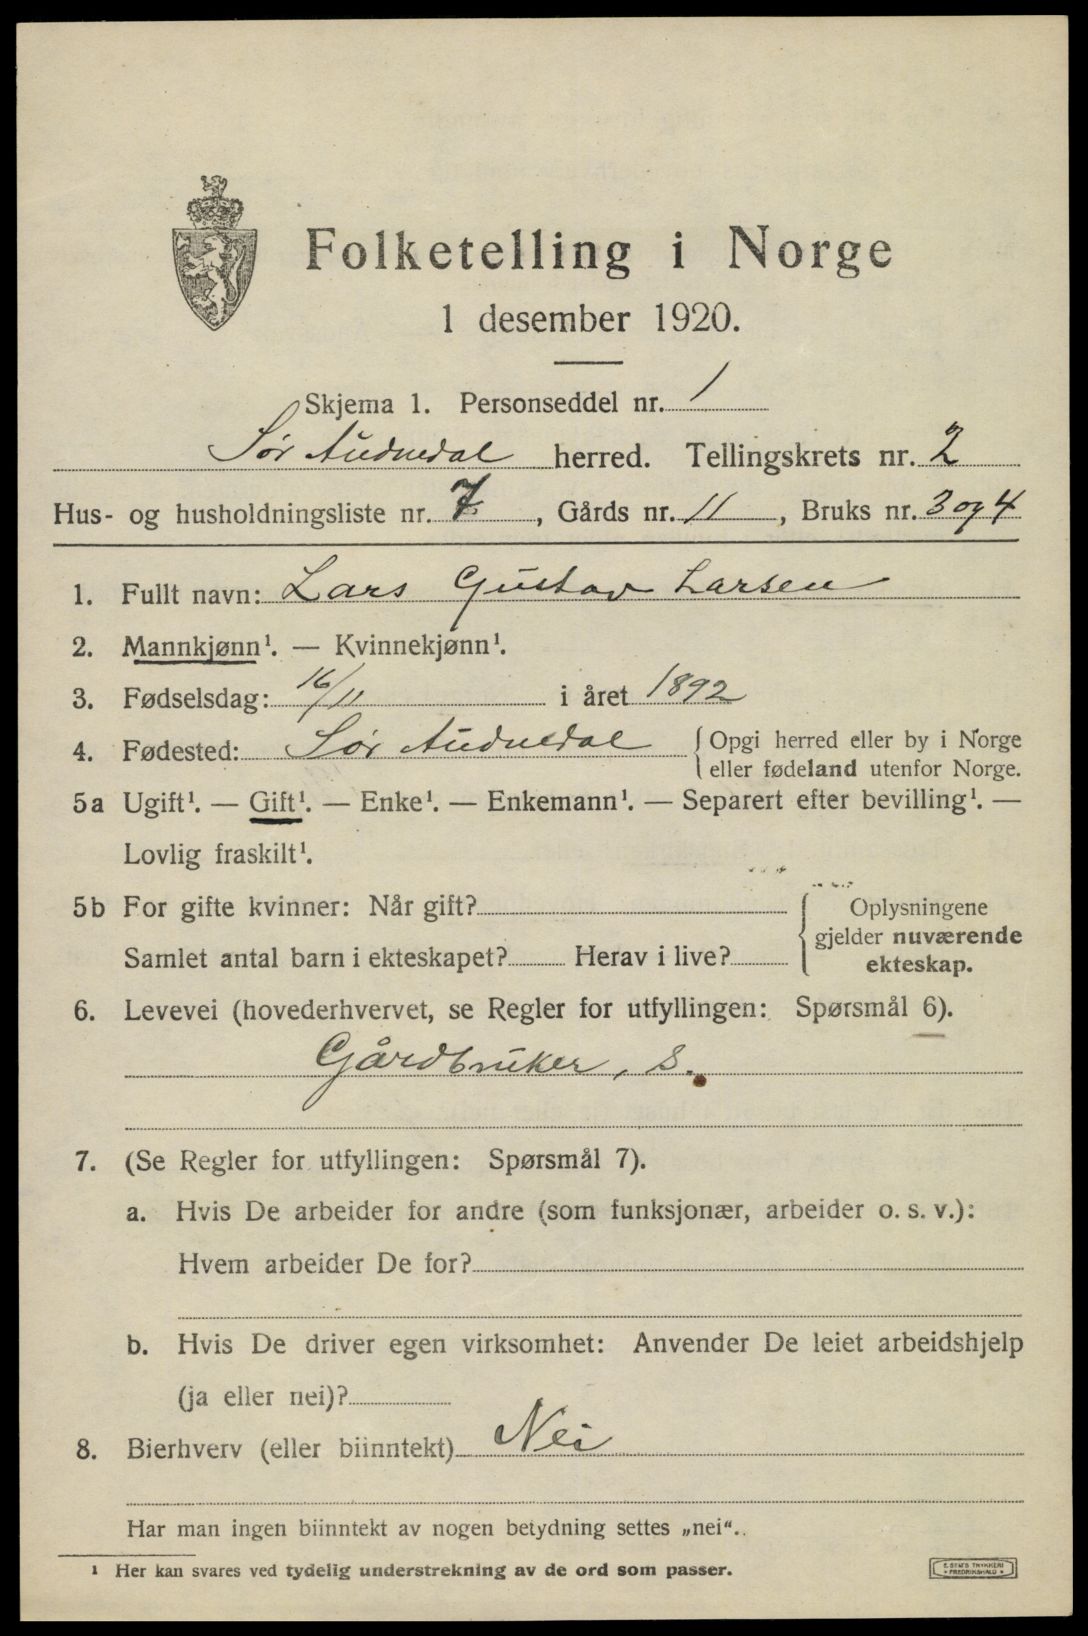 Folketelling i Norge
1 desember 1920.
Skjema 1. Personseddel nr. 1
Sør Audnedal herred. Tellingskrets nr. 2
Hus- og husholdningsliste nr. 7, Gårds nr. 11, Bruks nr. 3 og 4
1. Fullt navn: Lars Gustav Larsen
2. Mannkjønn¹. — Kvinnekjønn¹.
3. Fødselsdag: 16/11 i året 1892
4. Fødested: Sør Audnedal { Opgi herred eller by i Norge
eller fødeland utenfor Norge.
5a Ugift¹. — Gift¹. — Enke¹. — Enkemann¹. — Separert efter bevilling¹. —
Lovlig fraskilt¹.
5b For gifte kvinner: Når gift? { Oplysningene
gjelder nuværende
ekteskap.
Samlet antal barn i ekteskapet? Herav i live?
6. Levevei (hovederhvervet, se Regler for utfyllingen: Spørsmål 6).
Gårdbruker, S.
7. (Se Regler for utfyllingen: Spørsmål 7).
a. Hvis De arbeider for andre (som funksjonær, arbeider o. s. v.):
Hvem arbeider De for?
b. Hvis De driver egen virksomhet: Anvender De leiet arbeidshjelp
(ja eller nei)?
8. Bierhverv (eller biinntekt) Nei
Har man ingen biinntekt av nogen betydning settes „nei“.
¹ Her kan svares ved tydelig understrekning av de ord som passer.
E. SEM'S TRYKKERI
FREDRIKSHALD